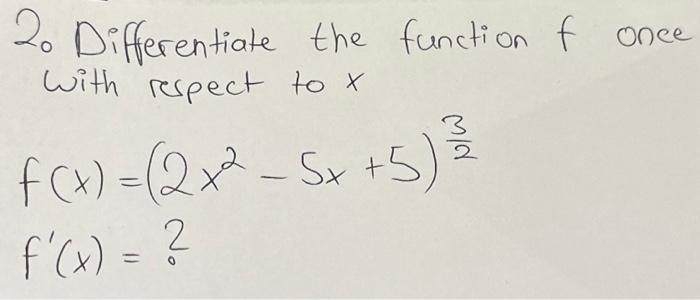 2. Differentiate the function f once
with respect to x
f(x) = (2x² - 5x + 5)^(3/2)
f'(x) = ?